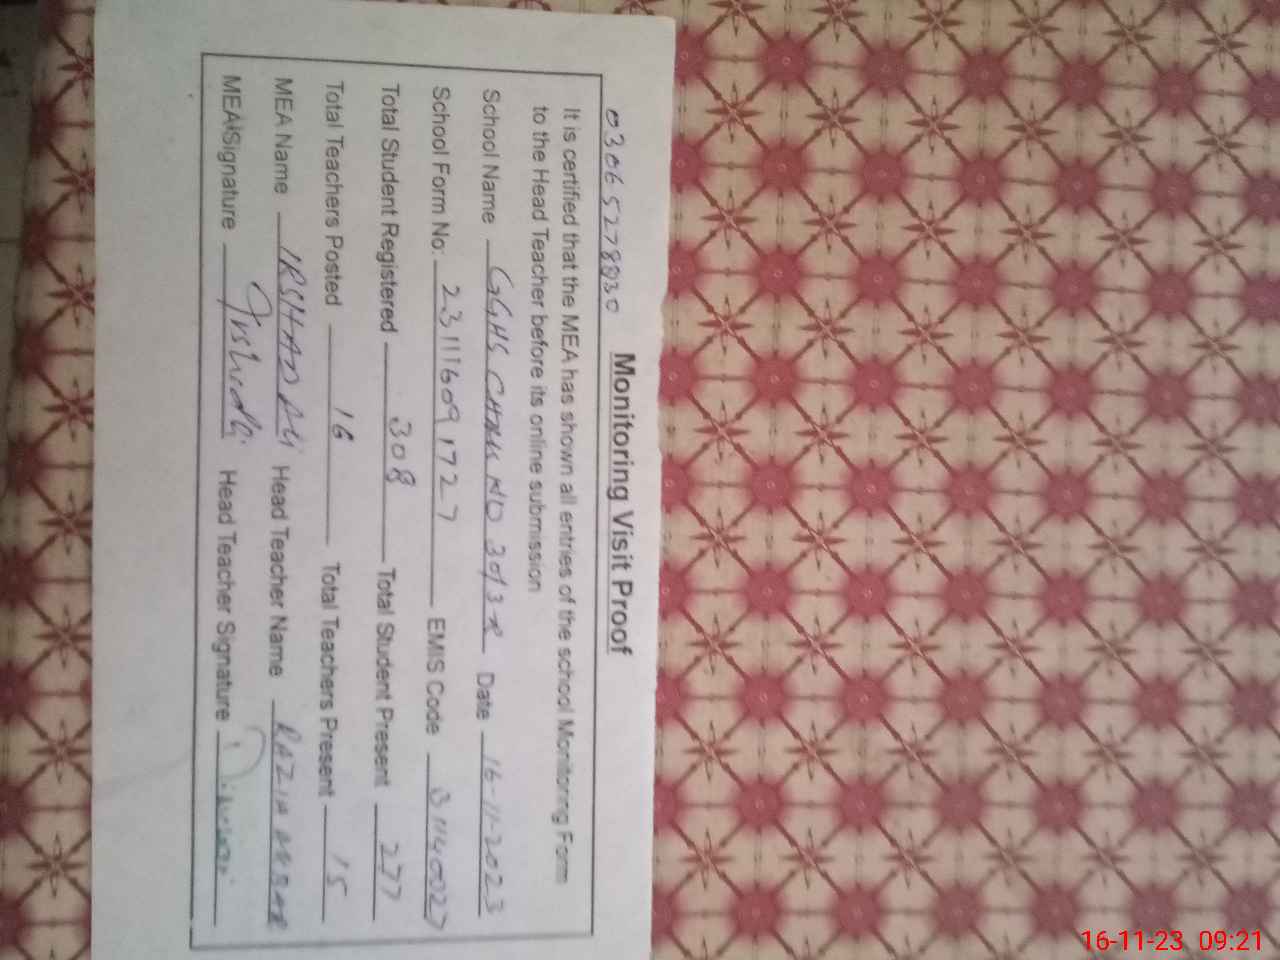 03065278830
Monitoring Visit Proof
It is certified that the MEA has shown all entries of the school Monitoring Form
to the Head Teacher before its online submission
School Name GGHS CHAK NO 30/3-R Date 16-11-2023
School Form No: 23111609 1727 EMIS Code 31140027
Total Student Registered 308 Total Student Present 277
Total Teachers Posted 16 Total Teachers Present 15
MEA Name IRSHAD ALI Head Teacher Name RAZIA AKBAR
MEA Signature Irshad Ali Head Teacher Signature
16-11-23 09:21